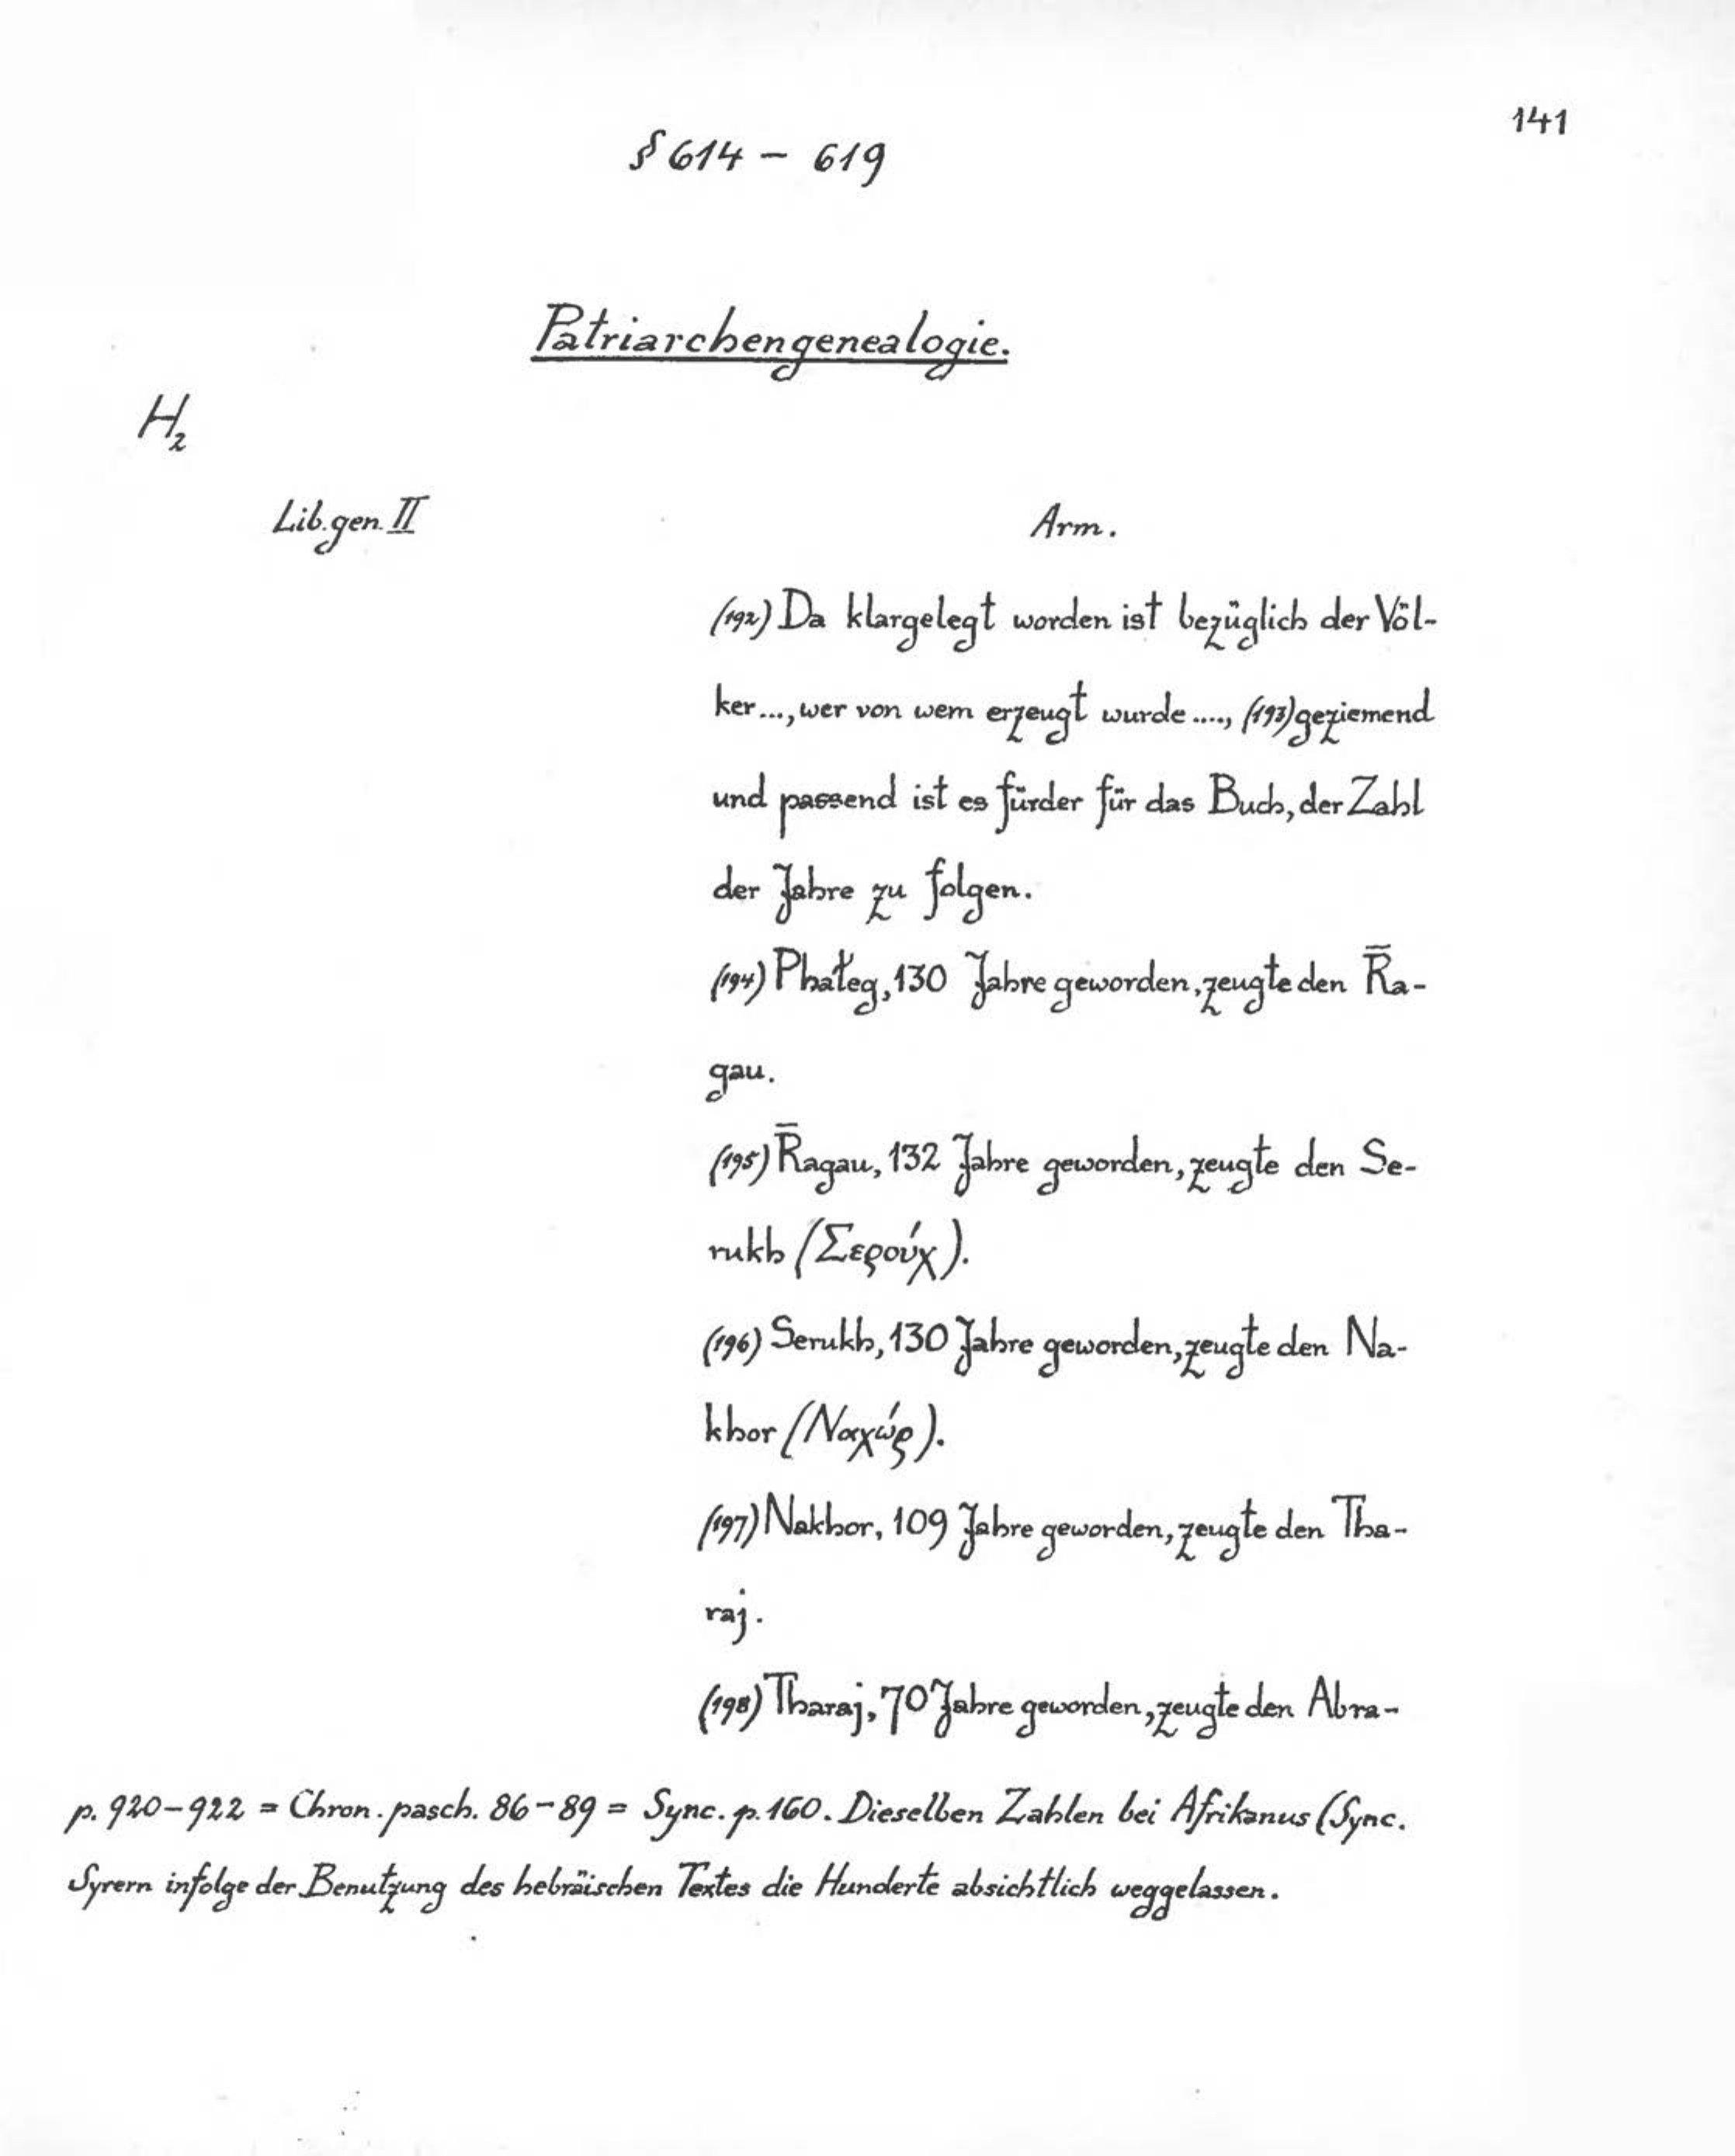 141
§ 614 – 619
Patriarchengenealogie.
H₂
Lib. gen. II
Arm.
(192) Da klargelegt worden ist bezüglich der Völ-
ker..., wer von wem erzeugt wurde ...., (193) geziemend
und passend ist es fürder für das Buch, der Zahl
der Jahre zu folgen.
(194) Phałeg, 130 Jahre geworden, zeugte den R̄a-
gau.
(195) R̄agau, 132 Jahre geworden, zeugte den Se-
rukh (Σερούχ).
(196) Serukh, 130 Jahre geworden, zeugte den Na-
khor (Ναχώρ).
(197) Nakhor, 109 Jahre geworden, zeugte den Tha-
raj.
(198) Tharaj, 70 Jahre geworden, zeugte den Abra-
p. 920–922 = Chron. pasch. 86–89 = Sync. p. 160. Dieselben Zahlen bei Afrikanus (Sync.
Syrern infolge der Benutzung des hebräischen Textes die Hunderte absichtlich weggelassen.